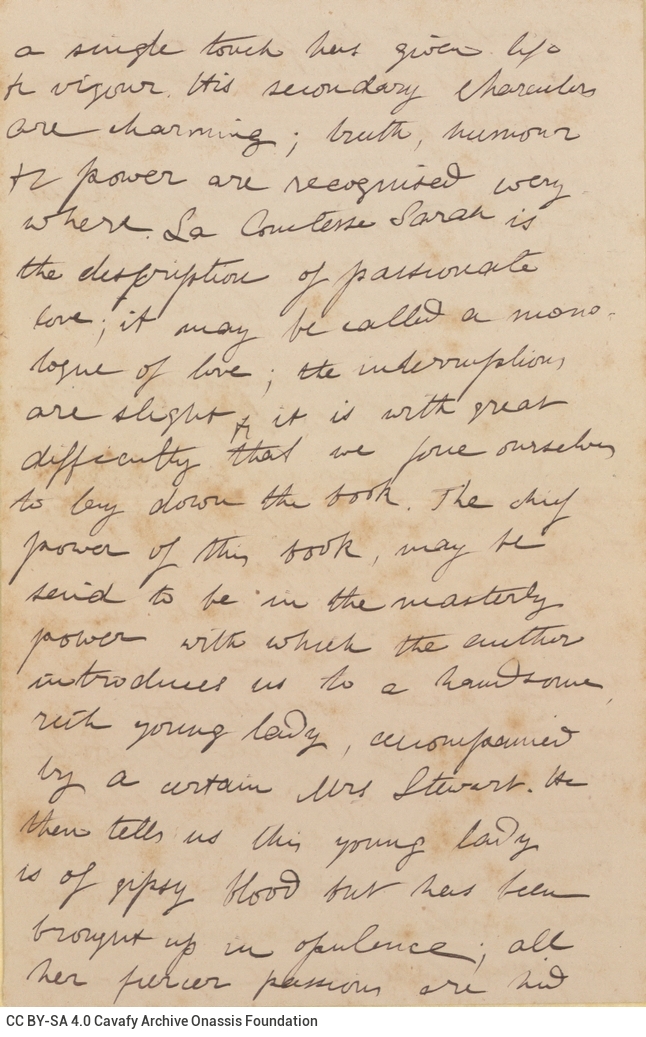 a single touch has given life
& vigour. His secondary characters
are charming; truth, humour
& power are recognised every
where. La Comtesse Sarah is
the description of passionate
love; it may be called a mono-
logue of love; the interruptions
are slight & it is with great
difficulty that we force ourselves
to lay down the book. The chief
power of this book, may be
said to be in the masterly
power with which the author
introduces us to a handsome,
rich young lady, accompanied
by a certain Mrs Stewart. He
then tells us this young lady
is of gipsy blood but has been
brought up in opulence; all
her fiercer passions are hid
CC BY-SA 4.0 Cavafy Archive Onassis Foundation